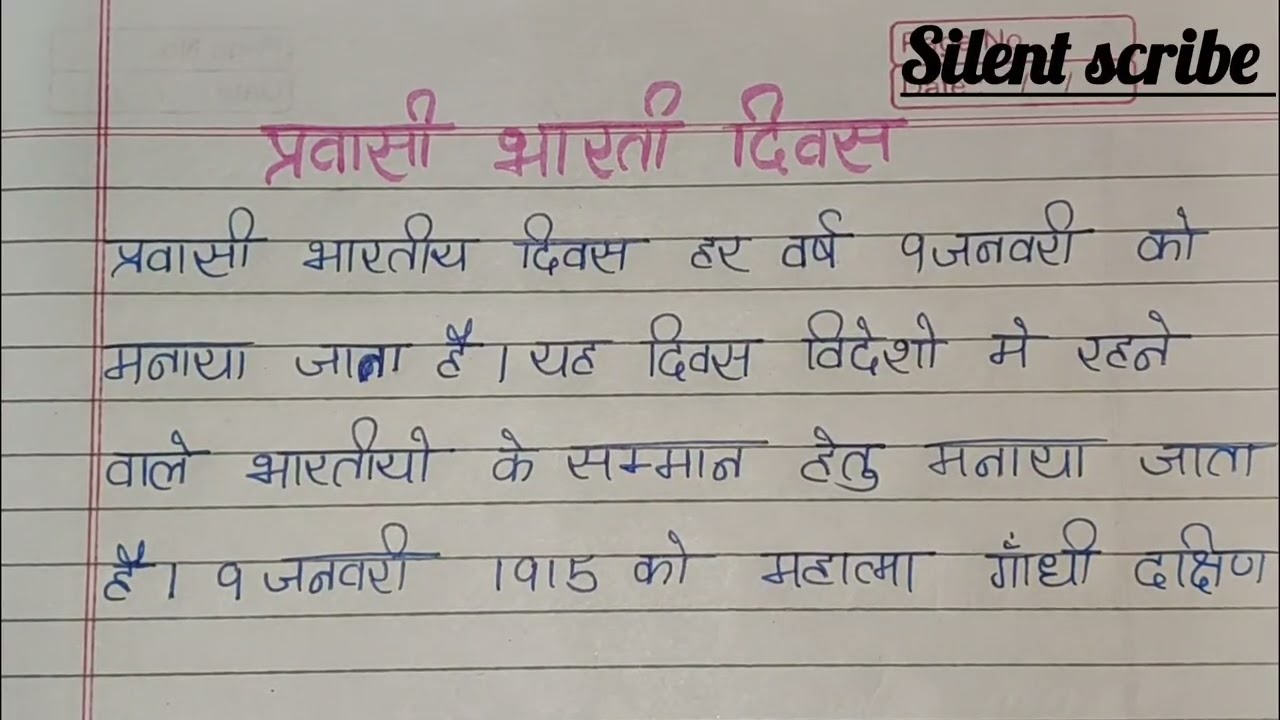 Page No.
Date / /
Silent scribe
प्रवासी भारती दिवस
प्रवासी भारतीय दिवस हर वर्ष 9जनवरी को
मनाया जाता है। यह दिवस विदेशो मे रहने
वाले भारतीयो के सम्मान हेतु मनाया जाता
है। 9 जनवरी 1915 को महात्मा गाँधी दक्षिण